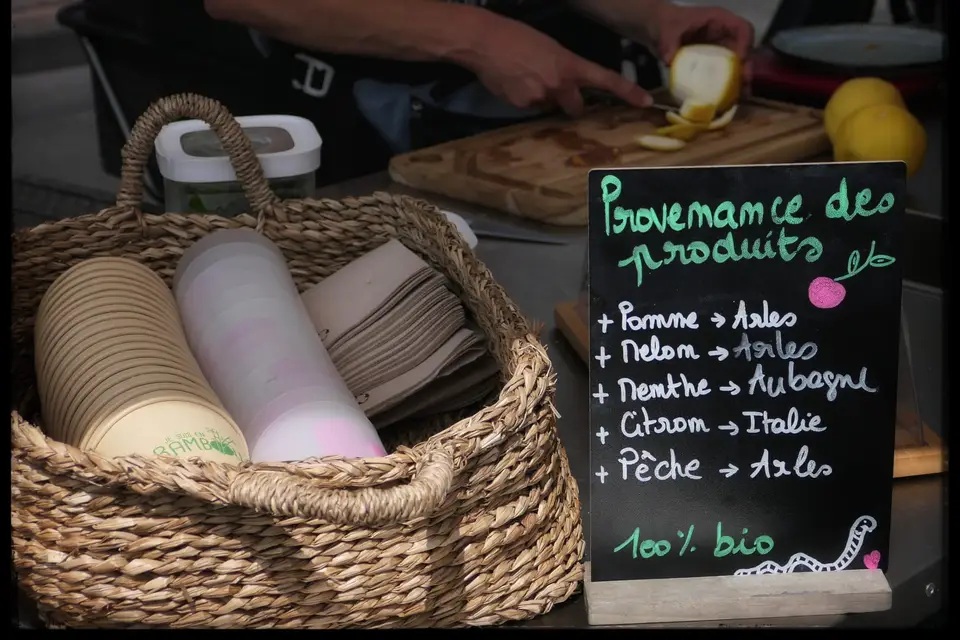 Provenance des
produits
+ Pomme → Arles
+ Melon → Arles
+ Menthe → Aubagne
+ Citrom → Italie
+ Pêche → Arles
100% bio
JE SUIS EN
BAMBOU